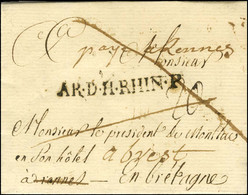 paye de Rennes
Monsieur
AR.D.H-RHIN.P.
Monsieur le president de Montluc
en son hôtel a Brest
a vannes En bretagne